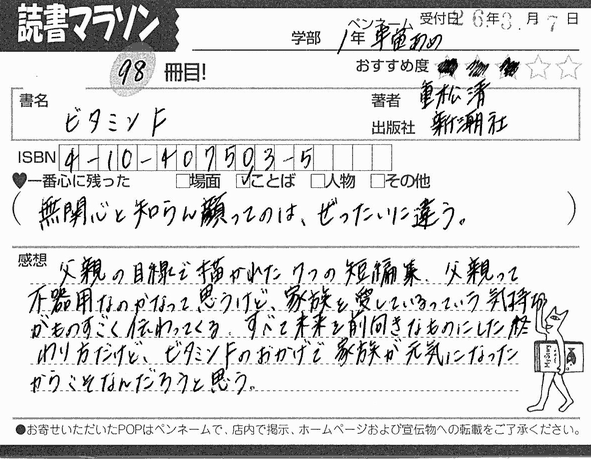 読書マラソン
98 冊目!
学部 1年 ペンネーム 車窓あめ 受付日 26年3.月7日
おすすめ度 ★★★☆☆
書名 ビタミンF
著者 重松清
出版社 新潮社
ISBN 4-10-407503-5
♥一番心に残った □場面 ☑ことば □人物 □その他
(無関心と知らん顔ってのは、ぜったいに違う。)
感想
父親の目線で描かれた7つの短編集。父親って
不器用なのかなって思うけど、家族を愛しているっていう気持ち
がものすごく伝わってくる。すべて未来を前向きなものにした終
わり方だけど、ビタミンFのおかげで家族が元気になった
からこそなんだろうと思う。
●お寄せいただいたPOPはペンネームで、店内で掲示、ホームページおよび宣伝物への転載をご了承ください。